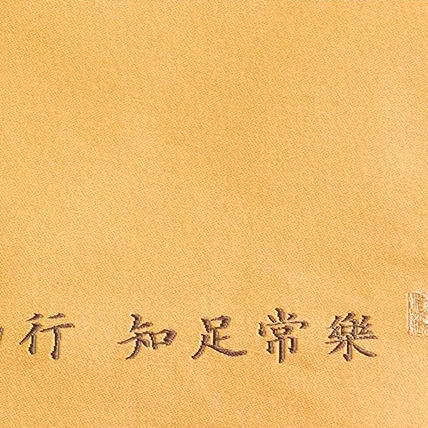 行 知足常樂